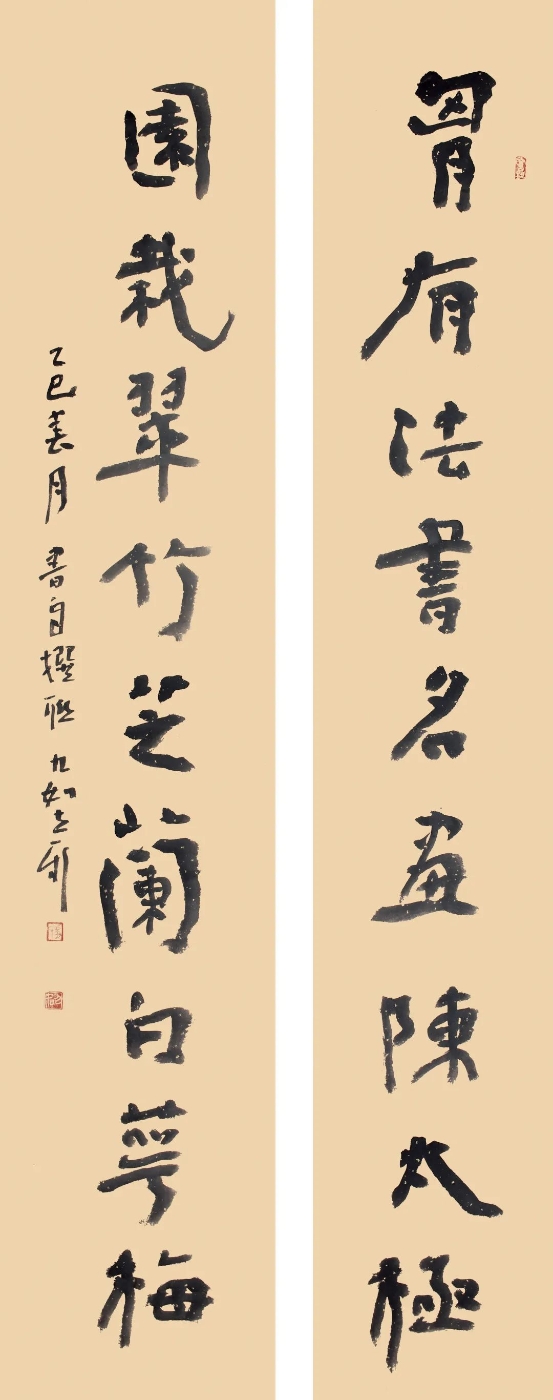 胷有法書名畫陳太極
園栽翠竹芝蘭白萼梅
乙巳春月 書自撰聯 九如